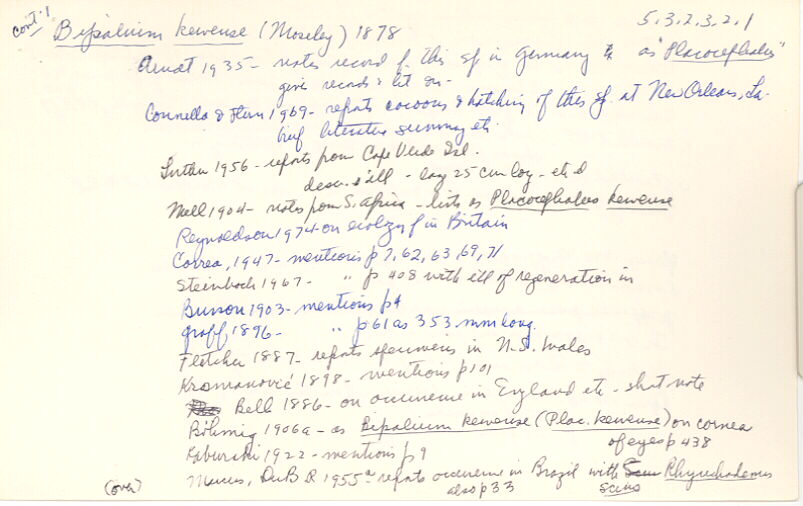 cont'd Bipalium kewense (Moseley) 1878 5.3.2.3.2.1
Arndt 1935 - notes record of this sp in Germany as "Placocephalus"
gives records & lit on -
Connella & Stern 1969 - reports cocoons & hatching of this sp. at New Orleans, La -
brief literature summary etc.
1956 - reports from Cape Verde Isl.
descr. & ill - long 25 cm long - etc
Mell 1904 - notes from S. Africa - lists as Placocephalus kewense
Reynoldson 1974 - on ecology of in Britain
Correa, 1947 - mentions p 7, 62, 63, 69, 71
Steinbock 1967 - " p 408 with ill of regeneration in
Busson 1903 - mentions p 4
Graff 1896 - " p 61 as 353 mm long.
Fletcher 1887 - reports specimens in N.S. Wales
1898 - mentions p 101
Bell 1886 - on occurrence in England etc - short note
Böhmig 1906a - as Bipalium kewense (Plac. kewense) on cornea
of eyes p 438
Kaburaki 1922 - mentions p 9
Marcus, DuB R 1955a reports occurrence in Brazil with Rhynchodemus
(over) also p 33 scius